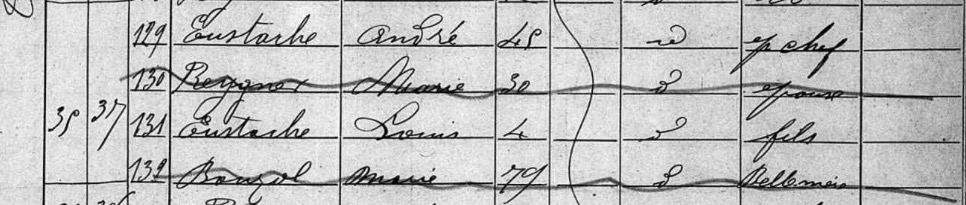 129 Eustache André 45 d ep chef
130 Reygner Marie 30 d epouse
35 37 131 Eustache Louis 4 d fils
132 Bouzol Marie 79 d Belle mere